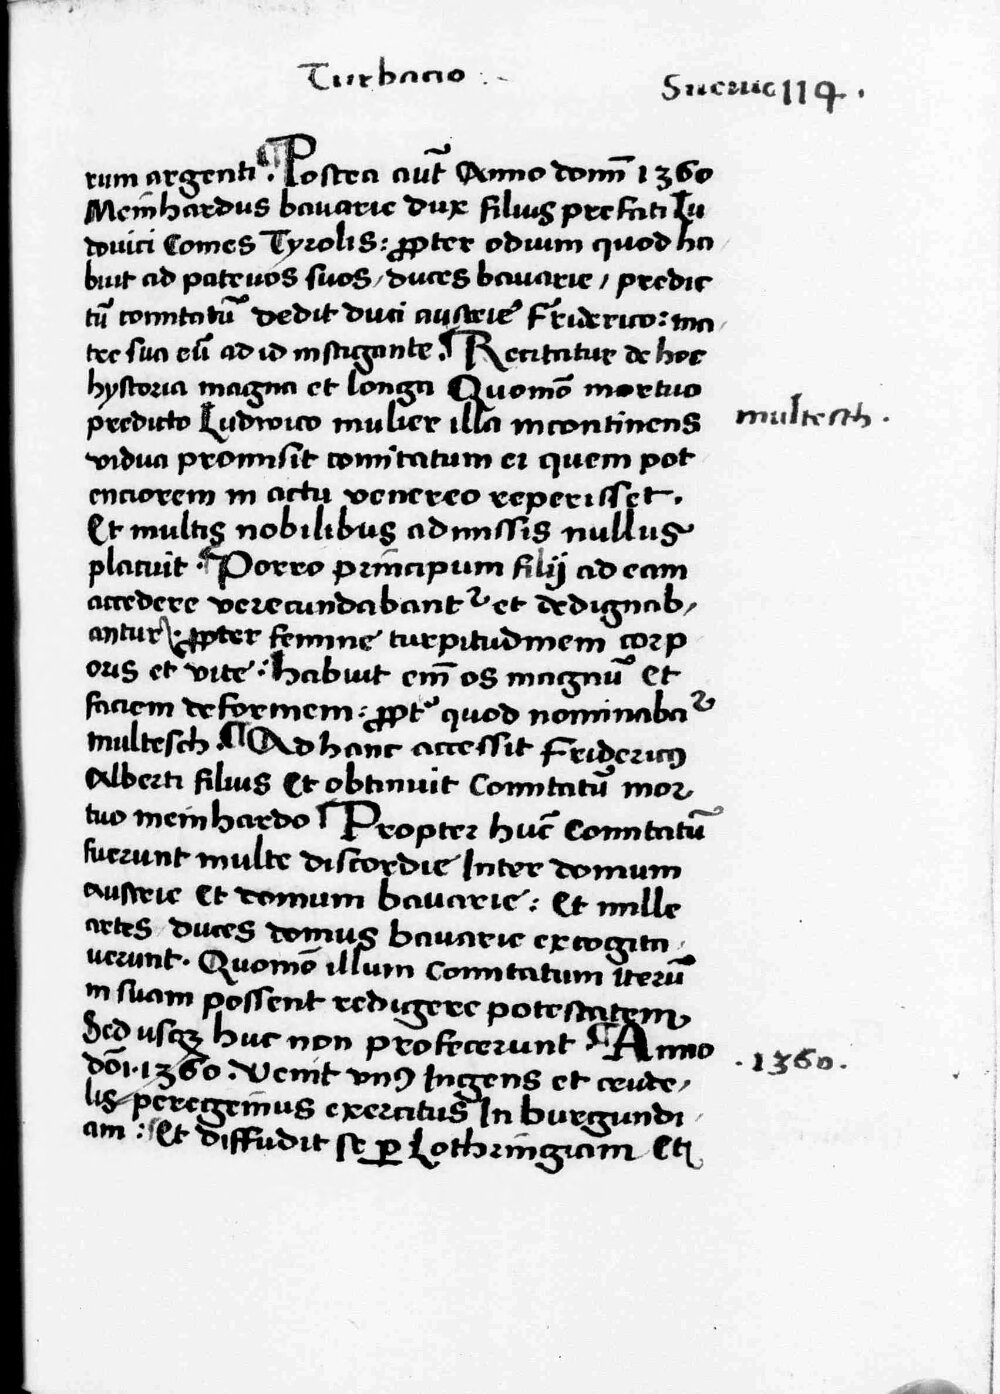 Turbacio
Sueuie 114.
rum argenti. ¶ Postea aūt Anno domī 1360
Meinhardus bavarie dux filius prefati Lu
dovici Comes Tyrolis: ꝓpter odium quod ha
buit ad patruos suos, duces bavarie, predic
tū comitatū dedit duci austrie Friderico: ma
tre sua eū ad id instigante. ¶ Recitatur de hoc
hystoria magna et longa Quomō mortuo
predicto Ludwico mulier illa incontinens
vidua promisit comitatum ei quem pot
enciorem in actu venereo reperisset.
Et multis nobilibus admissis nullus
placuit. ¶ Porro principum filij ad eam
accedere verecundabant² et dedignab,
antur: ꝓpter femine turpitudinem corp
oris et vite: habuit em̄ os magnū et
faciem deformem: ꝓpt² quod nominaba²
multesch. ¶ Ad hanc accessit Fridericꝰ
Alberti filius Et obtinuit Comitatū mor
tuo meinhardo ¶ Propter huc̄ Comitatū
fuerunt multe discordie Inter domum
austrie Et domum bavarie: Et mille
artes duces domus bavarie excogita,
uerunt. Quomō illum Comitatum iterū
in suam possent redigere potestatem,
Sed usqꝫ huc non profecerunt. ¶ Anno
dōi. 1360. Venit vnꝰ Ingens et crude,
lis peregrinus exercitus In burgundi
am: Et diffudit se ꝑ Lothringiam Et
multesch.
. 1360.